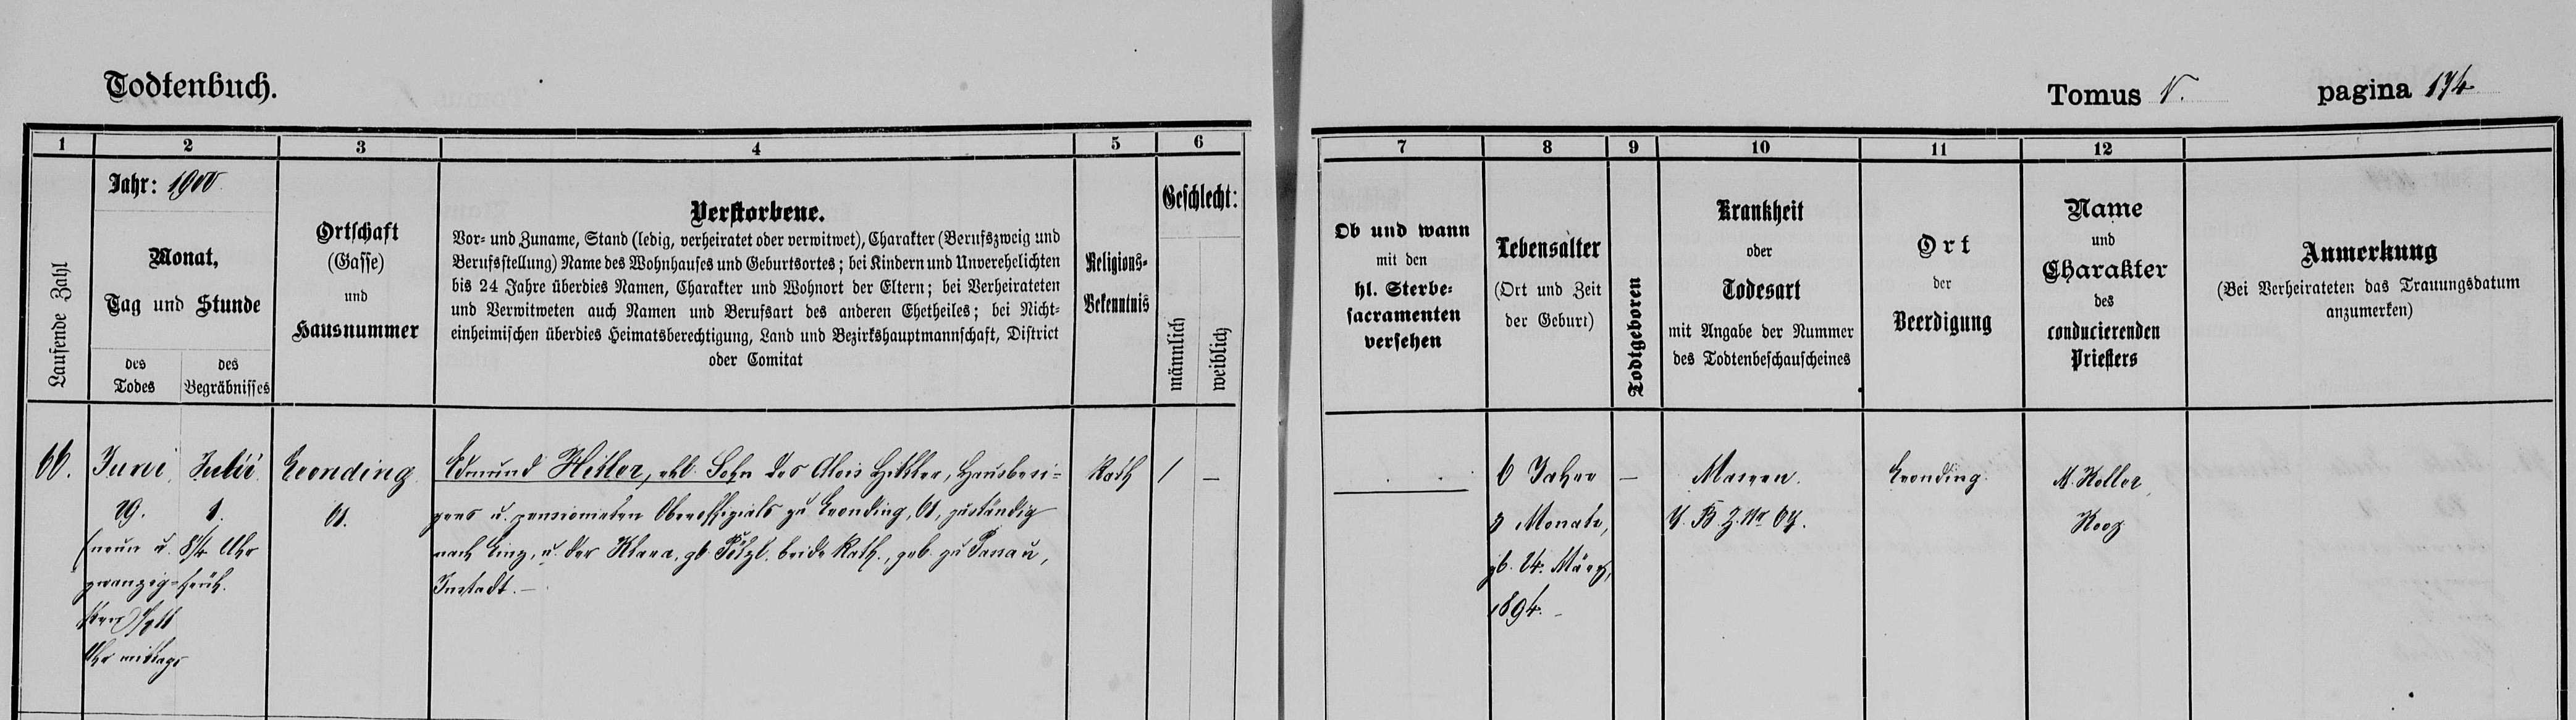 Todtenbuch.
Tomus V. pagina 174
1 2 3 4 5 6 7 8 9 10 11 12
Laufende Zahl
Jahr: 1900
Monat,
Tag und Stunde
des
Todes
des
Begräbnisses
Ortschaft
(Gasse)
und
Hausnummer
Verstorbene.
Vor- und Zuname, Stand (ledig, verheiratet oder verwitwet), Charakter (Berufszweig und
Berufsstellung) Name des Wohnhauses und Geburtsortes; bei Kindern und Unverehelichten
bis 24 Jahre überdies Namen, Charakter und Wohnort der Eltern; bei Verheirateten
und Verwitweten auch Namen und Berufsart des anderen Ehetheiles; bei Nicht-
einheimischen überdies Heimatsberechtigung, Land und Bezirkshauptmannschaft, District
oder Comitat
Religions-
Bekenntnis
Geschlecht:
männlich
weiblich
Ob und wann
mit den
hl. Sterbe-
sacramenten
versehen
Lebensalter
(Ort und Zeit
der Geburt)
Todtgeboren
Krankheit
oder
Todesart
mit Angabe der Nummer
des Todtenbeschauscheines
Ort
der
Beerdigung
Name
und
Charakter
des
conducierenden
Priesters
Anmerkung
(Bei Verheirateten das Trauungsdatum
anzumerken)
66.
Juni
29.
(neun u.
zwanzig-
sten)
Uhr mittags
Juli
1.
Uhr
früh.
Leonding
61.
Edmund Hitler, ehl. Sohn des Alois Hitler, Hausbesi-
zers u. pensionirten Oberoffizials zu Leonding, 61, zuständig
nach Linz, u. der Klara, gb. Pölzl, beide kath., geb. zu Passau,
Innstadt. –
Kath
1
–
6 Jahre
3 Monate,
gb. 24. März,
1894. –
–
Masern.
Z. Nr 64.
Leonding.
M. Koller,
Koop